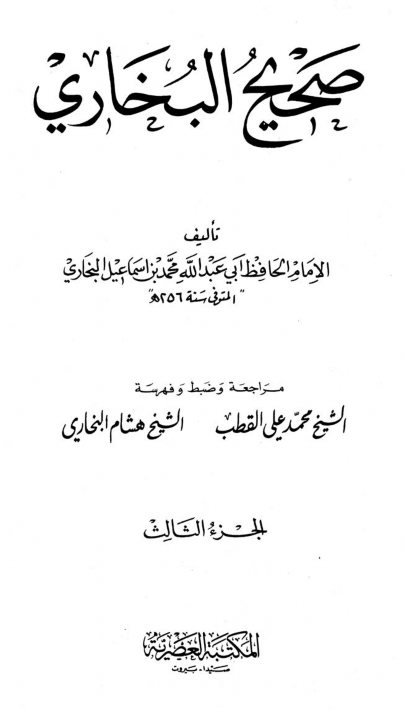 صَحِيحُ البُخَارِي
تأليف
الإمَام الحَافِظ أبي عَبد اللّه محمَّد بن اسمَاعيل البخَاري
"المتوفى سَنة ٢٥٦ه"
مرَاجعَة وَضبط وَفهرسَة
الشيخ محمّد علي القطب الشيخ هشام البخاري
الجزءُ الثالث
المكتبَة العَصريَّة
صَيدا - بيروت